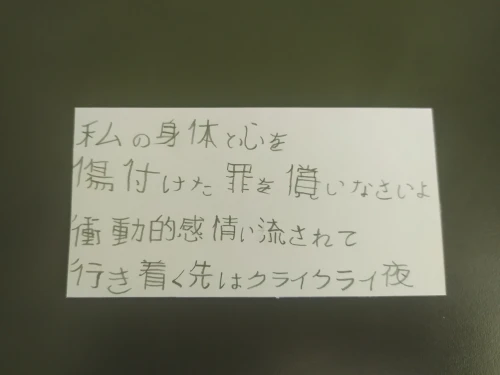 私の身体と心を
傷付けた罪を償いなさいよ
衝動的感情い流されて
行き着く先はクライクライ夜